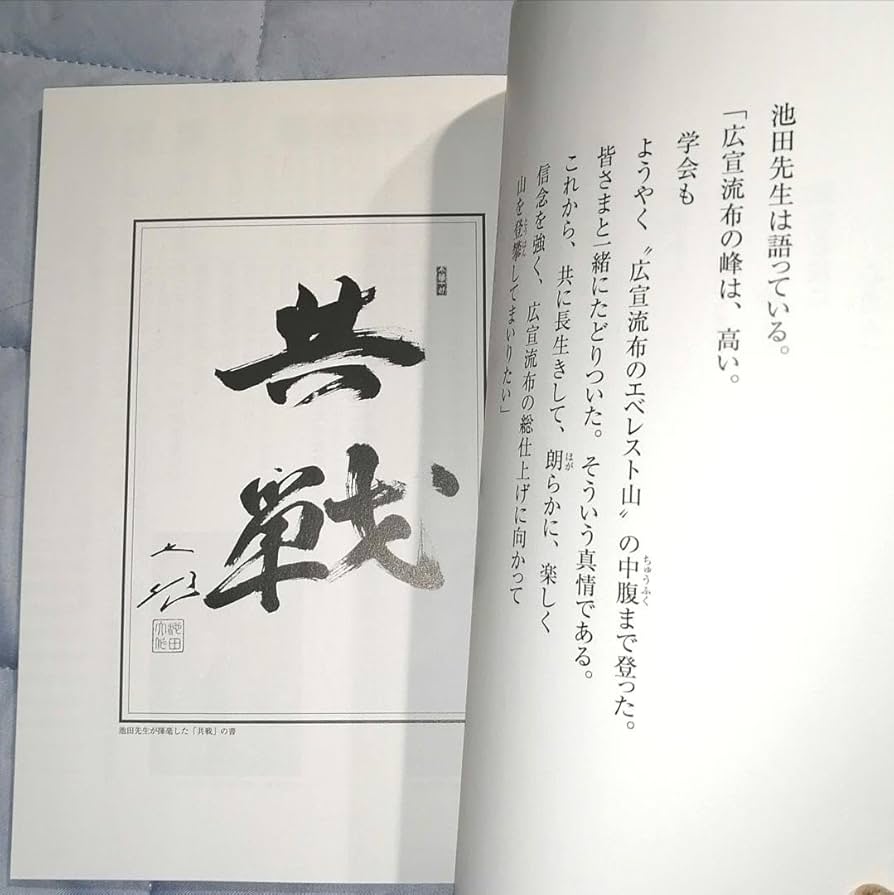 池田先生は語っている。
「広宣流布の峰は、高い。
学会も
ようやく〝広宣流布のエベレスト山〟の中腹まで登った。
ちゅうふく
皆さまと一緒にたどりついた。そういう真情である。
これから、共に長生きして、朗らかに、楽しく
ほが
信念を強く、広宣流布の総仕上げに向かって
山を登攀してまいりたい」
とうはん
共戦
池田先生が揮毫した「共戦」の書